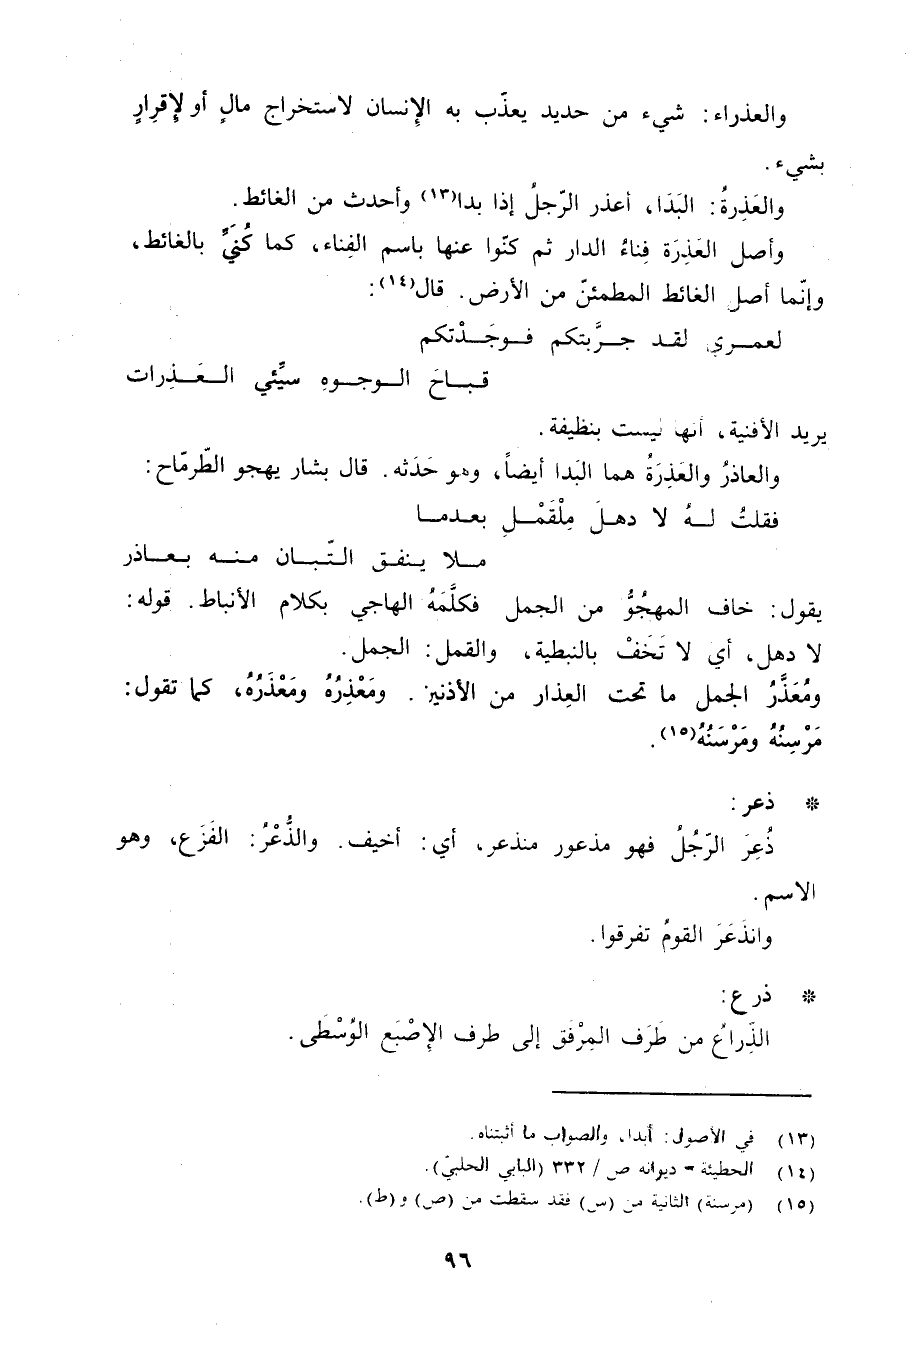 والعذراء: شيء من حديد يعذّب به الإنسان لاستخراج مالٍ أو لإقرارٍ
بشيء.
والعَذِرةُ: البَدَا، أعذر الرّجلُ إذا بدا(١٣) وأحدث من الغائط.
وأصل العَذِرَة فِناءُ الدار ثم كنّوا عنها باسم الفِناء، كما كُنِّيَ بالغائط،
وإنّما أصل الغائط المطمئنّ من الأرض. قال(١٤):
لعمـري لقـد جـرَّبتكم فـوجَـدْتكم
قبـاحَ الـوجـوهِ سيِّئي العَـذِرات
يريد الأفنية، أنها ليست بنظيفة.
والعاذرُ والعَذِرَةُ هما البَدا أيضاً، وهو حَدَثه. قال بشار يهجو الطّرمّاح:
فقلتُ لـهُ لا دهـلَ مِلْقَمْـلِ بعـدمـا
مـلا ينفـق التّبـان منـه بعـاذر
يقول: خاف المهجُوُّ من الجمل فكلَّمَهُ الهاجي بكلام الأنباط. قوله:
لا دهل، أي لا تَخَفْ بالنبطية، والقمل: الجمل.
ومُعَذَّرُ الجمل ما تحت العِذار من الأذنين. ومَعْذِرُهُ ومَعْذَرُهُ، كما تقول:
مَرْسِنُهُ ومَرْسَنُهُ(١٥).
* ذعر:
ذُعِرَ الرّجُلُ فهو مذعور منذعر، أي: أخيف. والذُّعْرُ: الفَزَع، وهو
الاسم.
وانذَعَرَ القومُ تفرقوا.
* ذرع:
الذِّراعُ من طَرَف المِرْفق إلى طرف الإصْبَع الوُسْطى.
(١٣) في الأصول: أبدا، والصواب ما أثبتناه.
(١٤) الحطيئة - ديوانه ص / ٣٣٢ (البابي الحلبيّ).
(١٥) (مرسنة) الثانية من (س) فقد سقطت من (ص) و (ط).
٩٦